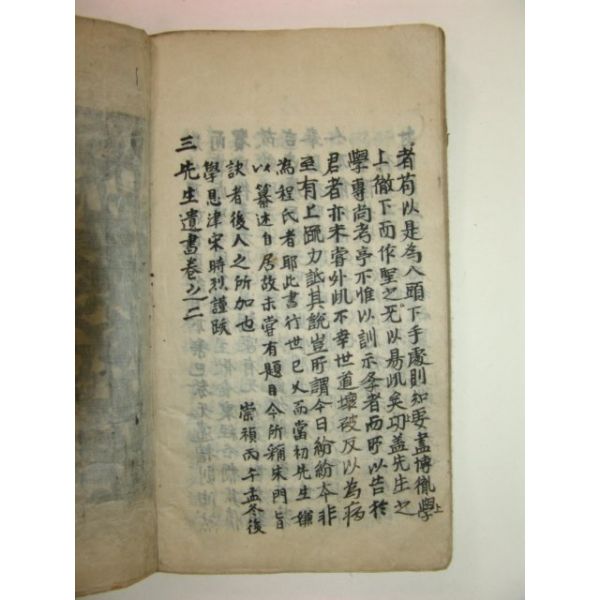 者苟以是為入頭下手處則知要盡博徹學上
上徹下而作聖之无以易此矣功盖先生之
學專尚考亭不惟以訓示李者而所以告於
君者亦未嘗外此不幸世道壞破反以為病
至有上疏力詆其說豈所謂今日紛紛本非
為程氏者耶此書行世已久而當初先生嫌
以纂述自居故未嘗有題目今所稱朱門旨
訣者後人之所加也 崇禎丙午孟冬後
學恩津宋時烈謹跋
三先生遺書卷之二